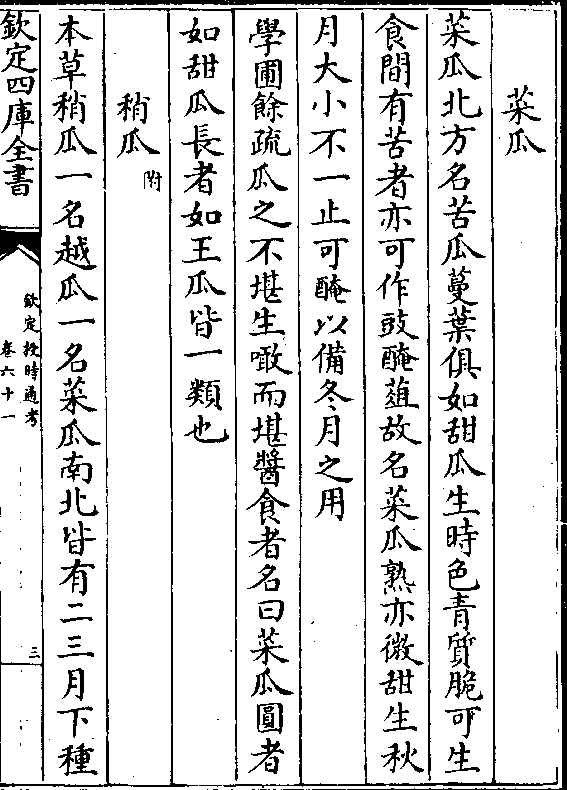 菜瓜
菜瓜北方名苦瓜蔓葉俱如甜瓜生時色青質脆可生
食間有苦者亦可作豉醃葅故名菜瓜熟亦微甜生秋
月大小不一止可醃以備冬月之用
學圃餘疏瓜之不堪生噉而堪醬食者名曰菜瓜圓者
如甜瓜長者如王瓜皆一類也
稍瓜附
本草稍瓜一名越瓜一名菜瓜南北皆有二三月下種
欽定四庫全書
欽定授時通考
卷六十一
三